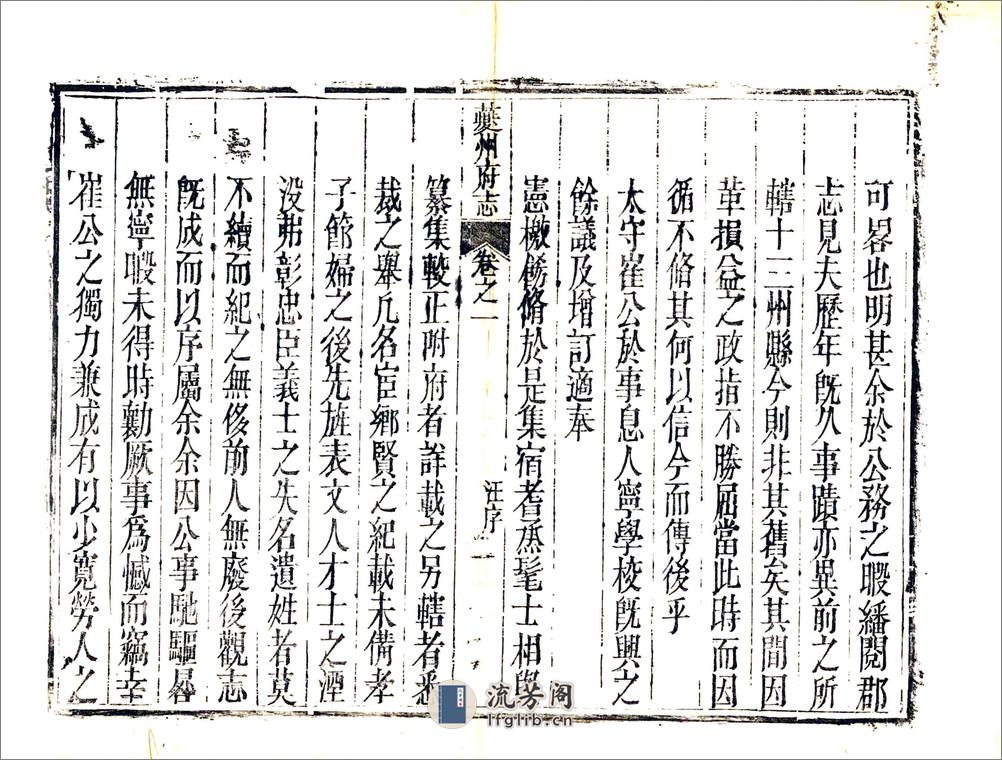 可畧也明甚余於公務之暇繙閱郡
志見夫歷年旣久事蹟亦異前之所
轄十三州縣今則非其舊矣其間因
革損益之政指不勝屈當此時而因
循不脩其何以信今而傳後乎
太守崔公於事息人寧學校旣興之
餘議及增訂適奉
憲檄飭脩於是集宿耆烝髦士相與
夔州府志 卷之一 汪序 二
纂集較正附府者詳載之另轄者悉
裁之舉凡名宦鄉賢之紀載未備孝
子節婦之後先旌表文人才士之湮
没弗彰忠臣義士之失名遺姓者莫
不續而紀之無侈前人無廢後觀志
旣成而以序屬余余因公事馳驅晷
無寧暇未得時勷厥事爲憾而竊幸
崔公之獨力兼成有以少寬勞人之
流芳阁
lfglib.cn